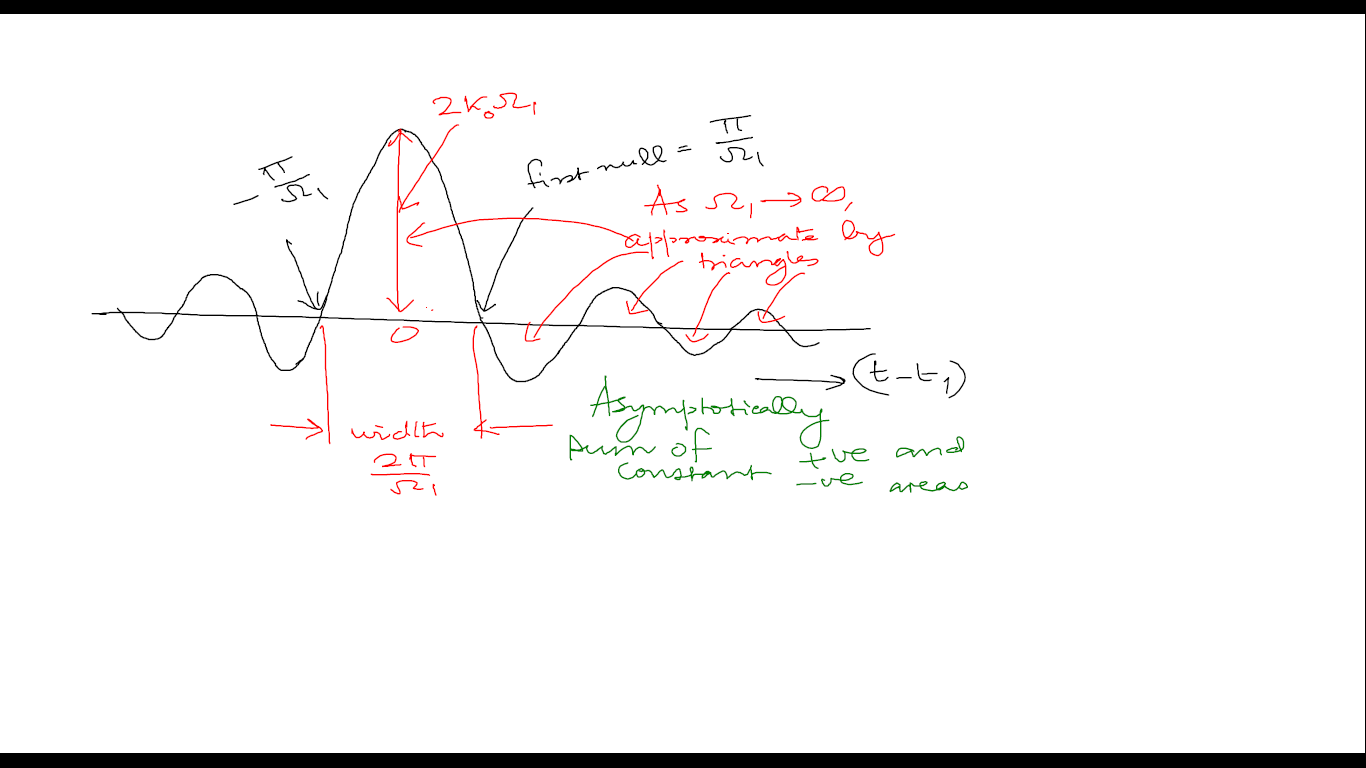 2K₀Ω₁
-π/Ω₁
first null = π/Ω₁
As Ω₁ → ∞,
approximate by
triangles
0
(t-t₁)
width
2π/Ω₁
Asymptotically
sum of +ve and
constant -ve areas